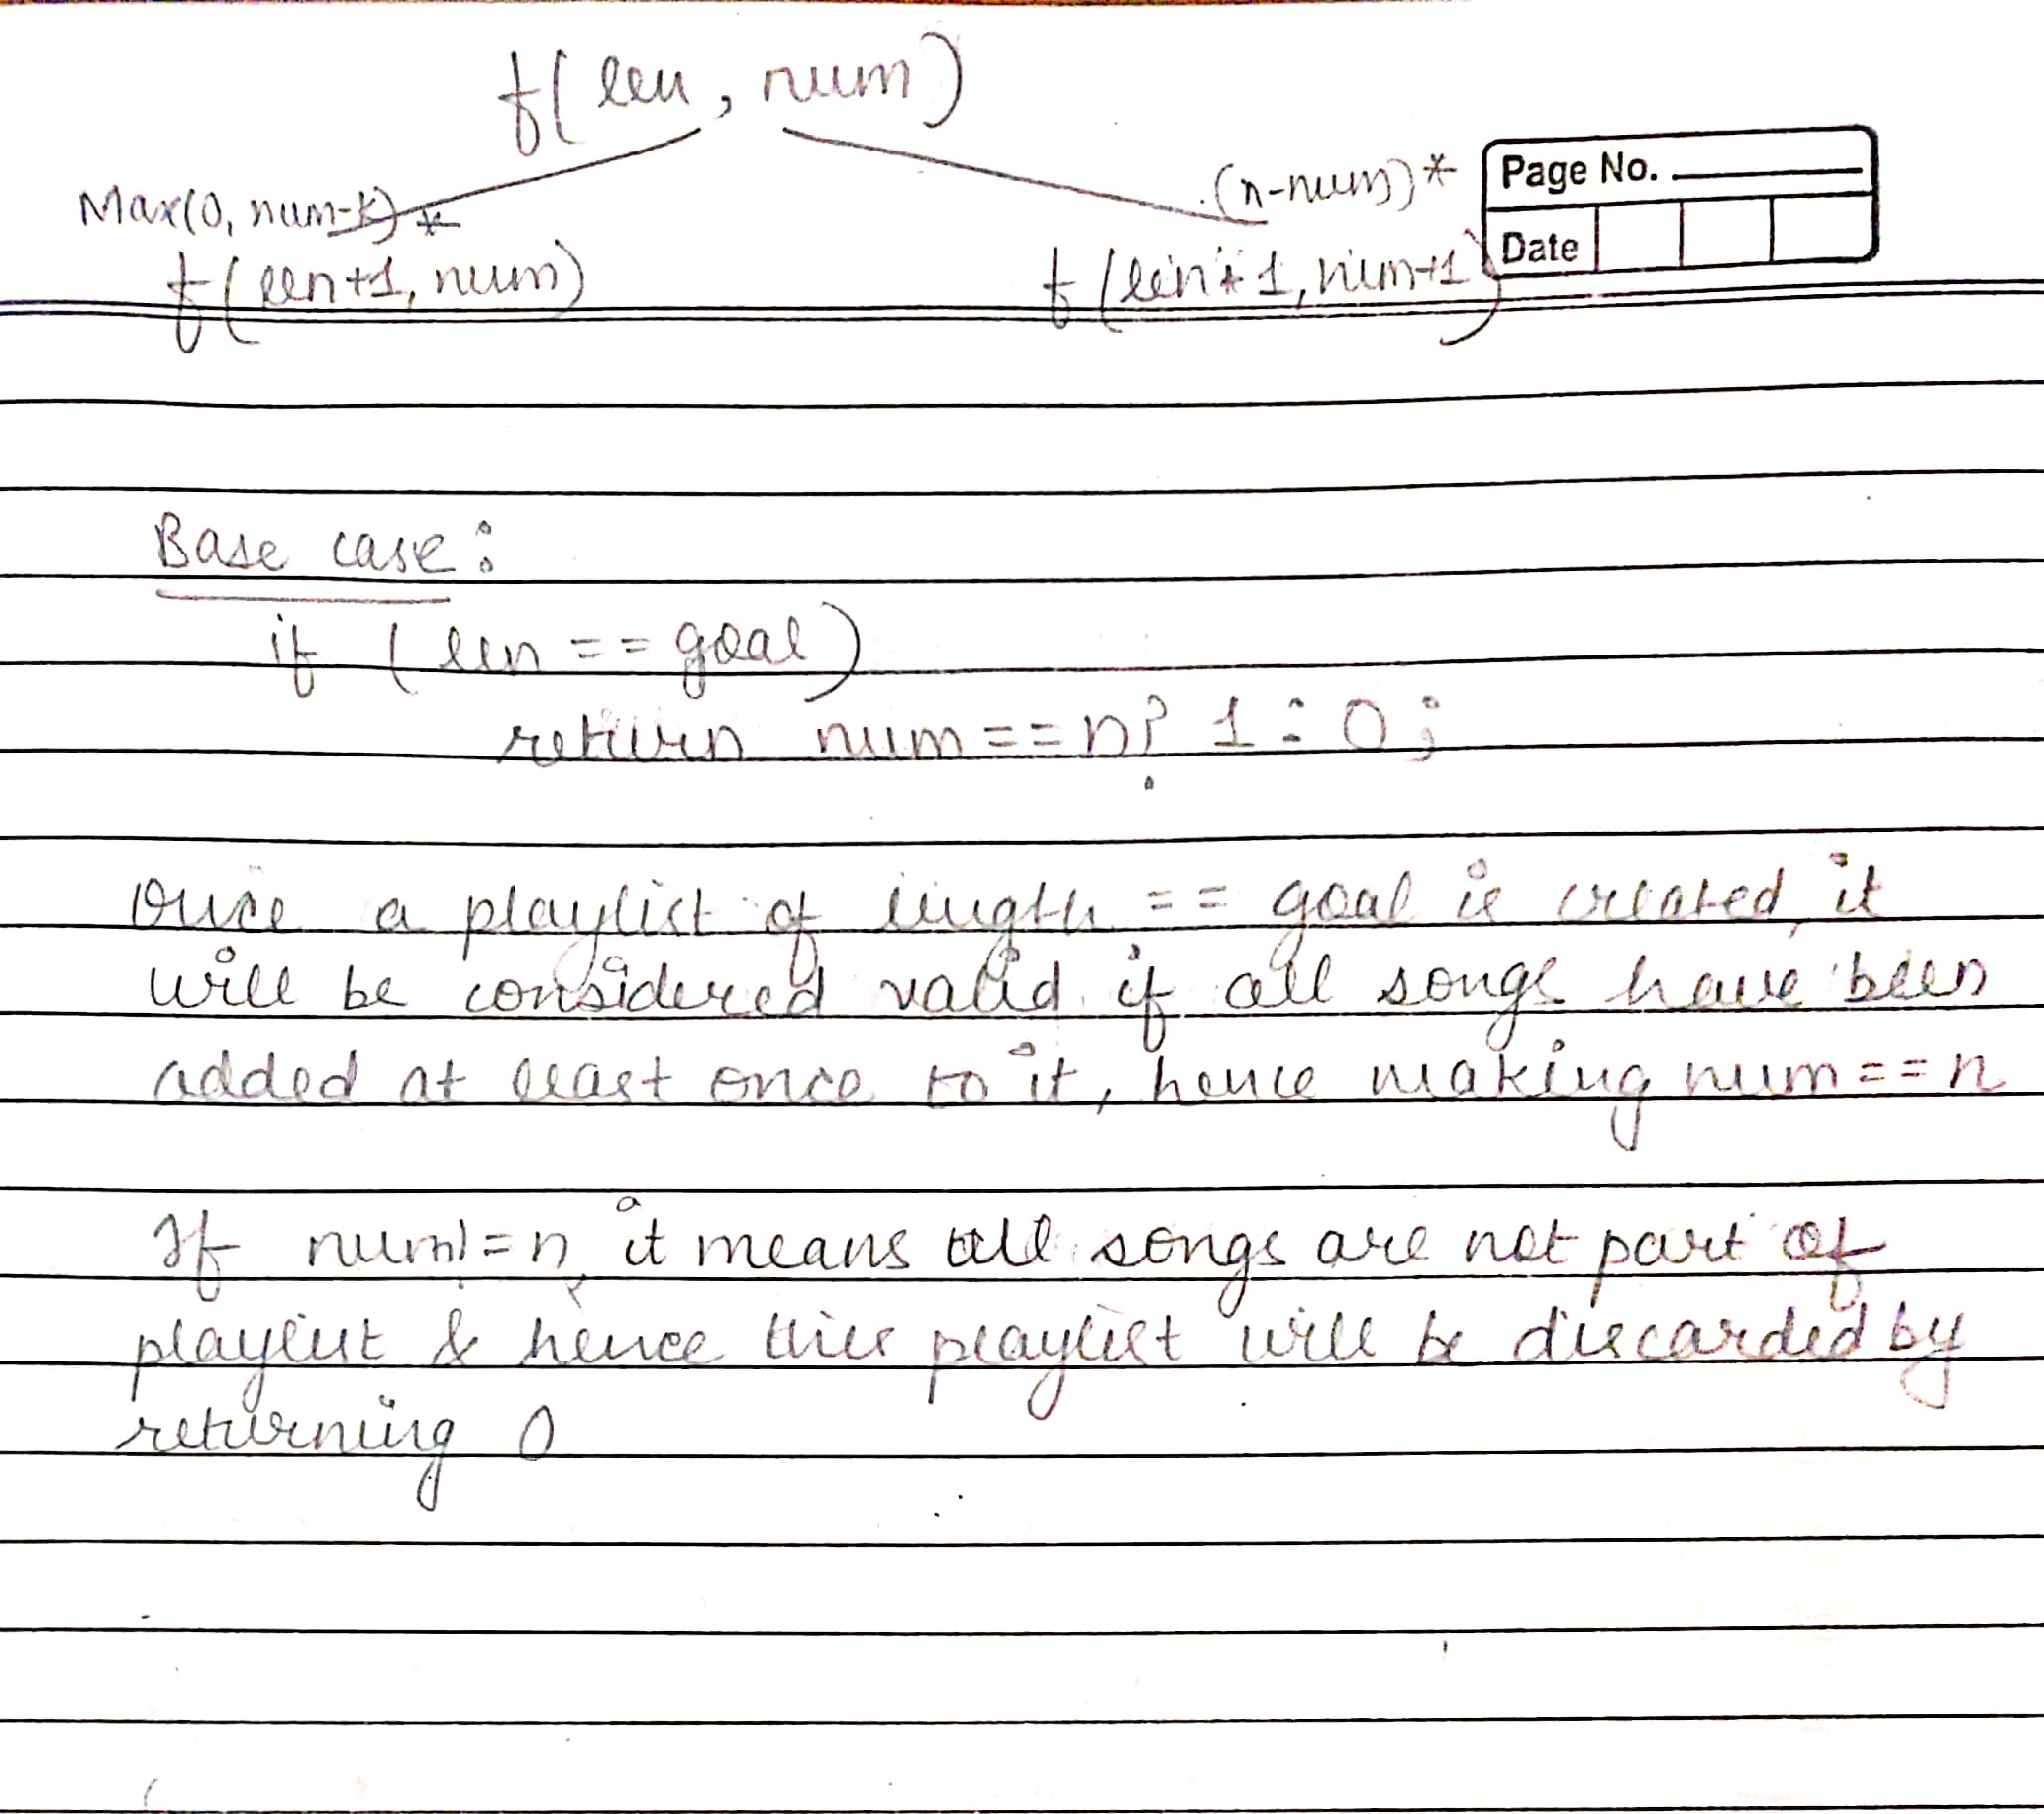 f(len, num)
Max(0, num-k)*
f(len+1, num)
(n-num)*
f(len+1, num+1)
Page No.
Date
Base case:
if (len == goal)
return num==n? 1 : 0;
Once a playlist of length == goal is created, it
will be considered valid if all songs have been
added at least once to it, hence making num==n
If num!=n, it means all songs are not part of
playlist & hence this playlist will be discarded by
returning 0